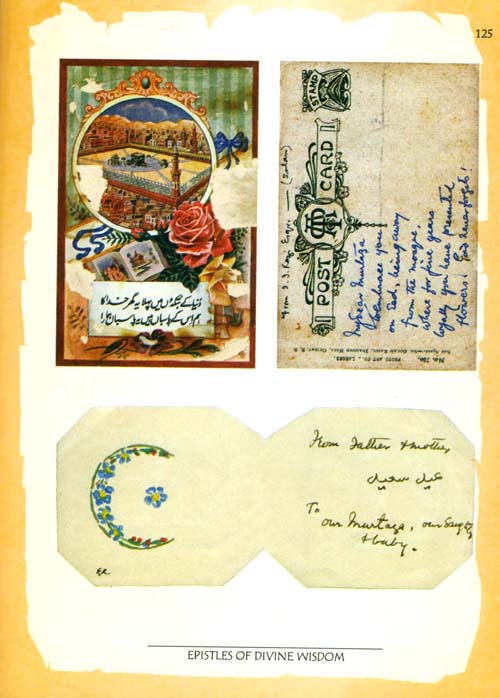 125
دنیا کے بتکدوں میں پہلا یہ گھر خدا کا
ہم اس کے پاسباں ہیں یہ پاسباں ہمارا
STAMP
POST CARD
From I. I. Kazi Esqr.
My dear Murtaza
I embrace you
on Eid, being away
from the mosque,
where for five years
loyally you have presented
flowers! God never forgets!
PHOTO ART CO., LAHORE.
No. 706.
From Father & mother
عيد سعيد
To
our Murtaza, our
& baby.
E.K.
EPISTLES OF DIVINE WISDOM